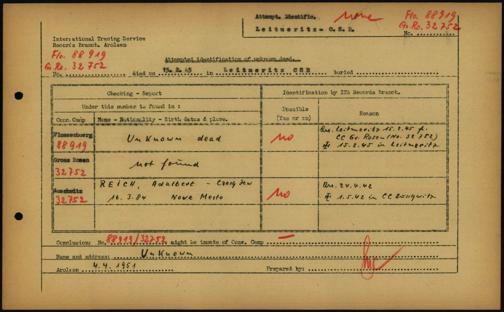 Attempt. Identific. none Flo. 88919
Leitmeritz - C.S.R. Gr.Ro. 32752
No.
International Tracing Service
Records Branch, Arolsen
Flo. 88919
Gr.Ro. 32752
Attempted identification of unknown dead.
No. died on 15.2.45 in Leitmeritz CSR buried
Checking - Report
Identification by ITS Records Branch.
Under this number is found in :
Possible (Yes or no)
Reason
Conc. Camp
Name - Nationality - Birth dates & place.
Flossenburg
88919
Unknown dead
no
Leitmeritz 15.2.45 f.
CC Gr. Rosen (No. 32752)
15.2.45 in Leitmeritz
Gross Rosen
32752
not found
Auschwitz
32752
REICH, Adalbert - Czech Jew
16.3.04 Nove Mesto
no
24.4.42
1.5.42 in CC
Conclusion: No. 88919/32752 might be inmate of Conc. Camp —
Name and address: Unknown
4.4.1951
Arolsen Prepared by: